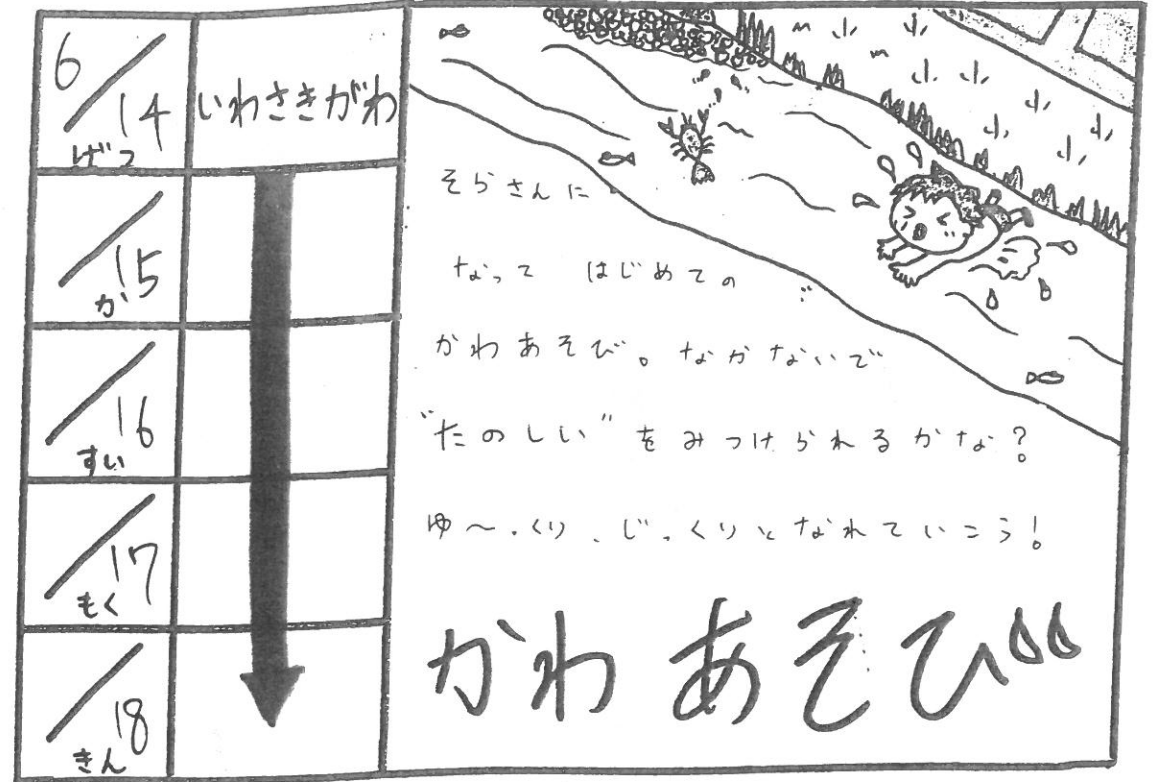 6/14
げつ
いわさきがわ
/15
か
/16
すい
/17
もく
/18
きん
そらさんに
なって はじめての
かわあそび。なかないで
“たのしい”をみつけられるかな?
ゆ〜っくり、じっくりとなれていこう!
かわあそび